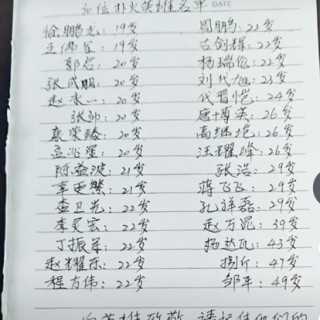 位扑火英雄名单 DATE
徐鹏龙：19岁 周鹏：22岁
王佛军：19岁 古剑辉：22岁
郭启：20岁 杨瑞伦：22岁
张成朋：20岁 刘代旭：23岁
赵永一：20岁 代晋恺：24岁
张帅：20岁 唐博英：26岁
康荣臻：20岁 高继垲：26岁
孟兆星：20岁 汪耀峰：26岁
陈益波：21岁 张浩：29岁
幸更繁：21岁 蒋飞飞：29岁
查卫光：22岁 孔祥磊：29岁
李灵宏：22岁 赵万昆：39岁
丁振军：22岁 杨达瓦：43岁
赵耀东：22岁 捌斤：47岁
程方伟：22岁 邹平：49岁
向英雄致敬 请记住他们的